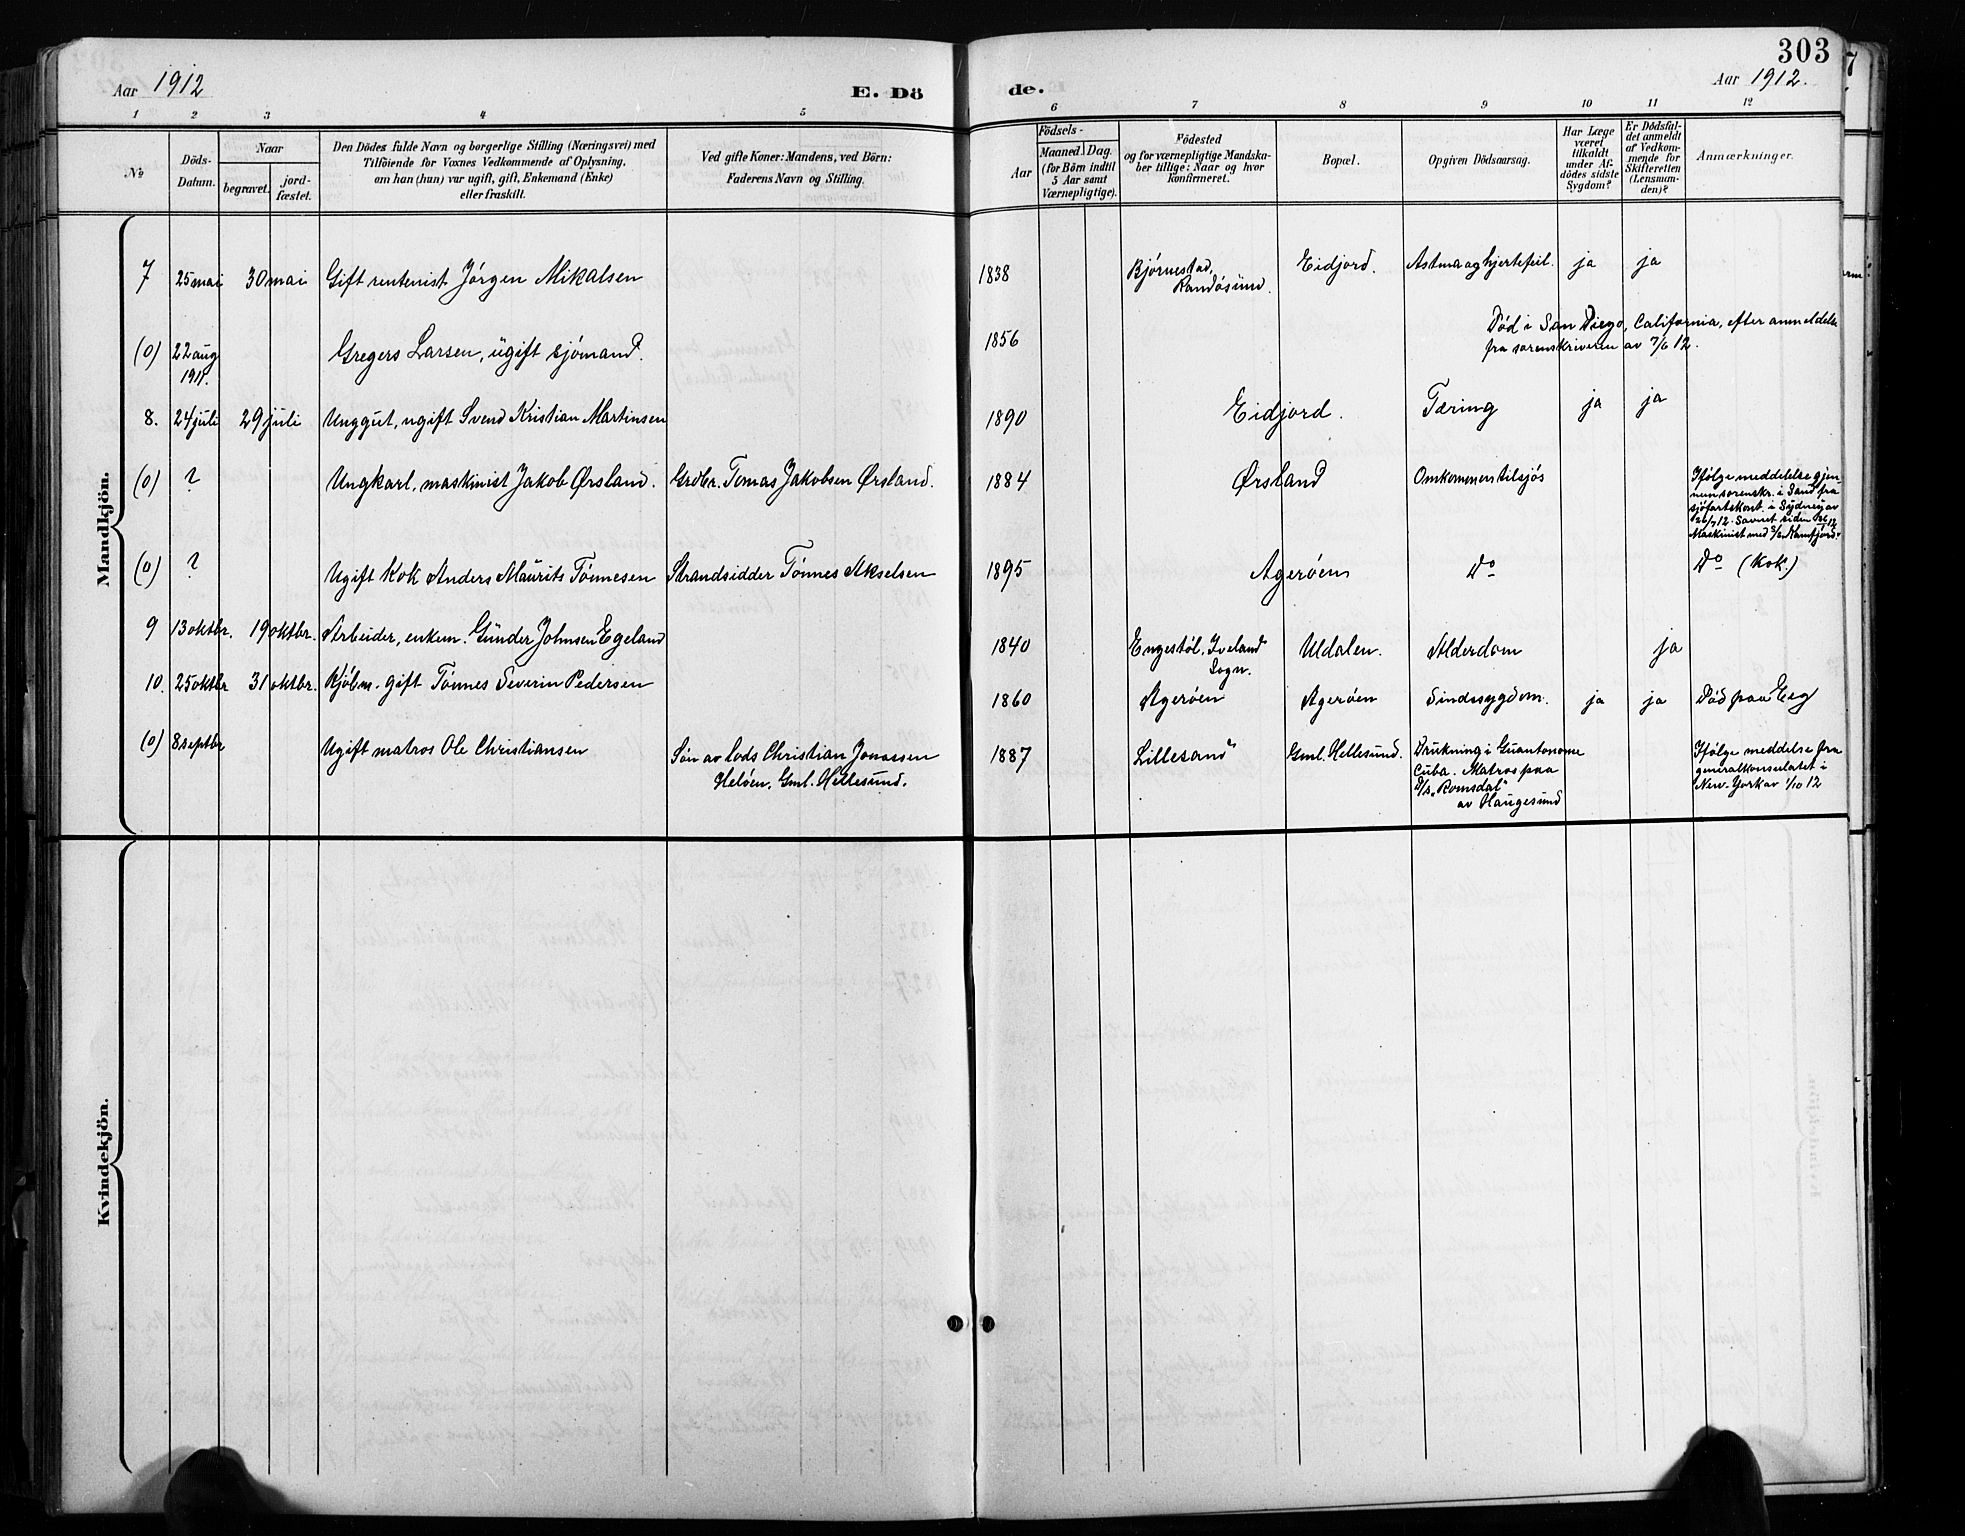 303
Aar 1912
E. Dö
de.
Aar 1912.
1 2 3 4 5 6 7 8 9 10 11 12
No
Döds-
Datum.
Naar
begravet.
jord-
fæstet.
Den Dödes fulde Navn og borgerlige Stilling (Næringsvei) med
Tilföiende for Voxnes Vedkommende af Oplysning,
om han (hun) var ugift, gift, Enkemand (Enke)
eller fraskilt.
Ved gifte Koner: Mandens, ved Börn:
Faderens Navn og Stilling.
Födsels-
Aar
Maaned. Dag.
(for Börn indtil
5 Aar samt
Værnepligtige).
Födested
og for værnepligtige Mandska-
ber tillige: Naar og hvor
konfirmeret.
Bopæl.
Opgiven Dödsaarsag.
Har Læge
været
tilkaldt
under Af-
dödes sidste
Sygdom?
Er Dödsfal-
det anmeldt
af Vedkom-
mende for
Skifteretten
(Lensman-
den)?
Anmærkninger.
Mandkjön.
7 25 mai 30 mai Gift rentenist Jörgen Mikalsen 1838 Bjørnestad, Eidjord. Astma og hjertefeil. ja ja
Randøsund.
(0) 22 aug Gregers Larsen, ugift sjömand. 1856 Död i San Diego, California, efter anmeldelse
1911. fra sorenskriveren av 7/6 12.
8. 24 juli 29 juli Unggut, ugift Svend Kristian Martinsen 1890 Eidjord. Tæring ja ja
(0) ? Ungkarl, maskinist Jakob Ørsland. Grdbr. Tomas Jakobsen Ørsland. 1884 Ørsland Omkommen tilsjøs Ifölge meddelelse gjen-
nem sorenskr. i Sand fra
sjöfartskont. i Sydney av
26/7 12. Savnet siden
Maskinist med S/S
(0) ? Ugift Kok Anders Maurits Tönnesen Strandsidder Tönnes Akselsen 1895 Agerøen Do Do (Kok.)
9 13 oktbr. 19 oktbr. Arbeider, enkem. Gunder Johnsen Egeland 1840 Engestöl, Iveland Udalen. Alderdom ja
Sogn.
10. 25 oktbr 31 oktbr. Kjøbm. gift Tönnes Severin Pedersen 1860 Agerøen Agerøen Sindssygdom. ja ja Död paa Eeg
(0) 8 septbr Ugift matros Ole Christiansen Sön av lods Christian Jonassen 1887 Lillesand Gml. Hellesund. Drukning i Guantonome Ifölge meddelse fra
Helöen, Gml. Hellesund. Cuba. Matros paa generalkonsulatet i
D/s. "Romsdal" New-York av 1/10 12
av Haugesund
Kvindekjön.